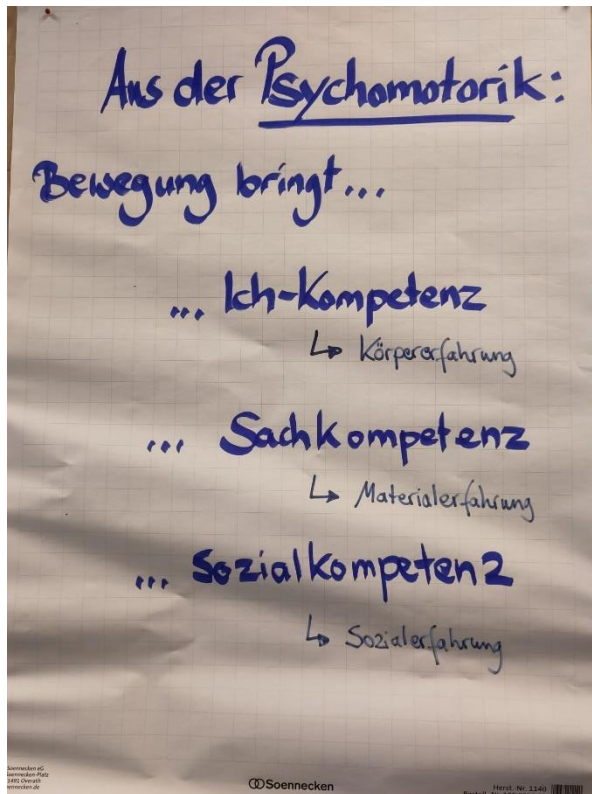 Aus der Psychomotorik:
Bewegung bringt...
... Ich-Kompetenz
↳ Körpererfahrung
... Sachkompetenz
↳ Materialerfahrung
... Sozialkompetenz
↳ Sozialerfahrung
Soennecken eG
Soennecken-Platz
51491 Overath
soennecken.de
Soennecken
Herst. Nr. 1140